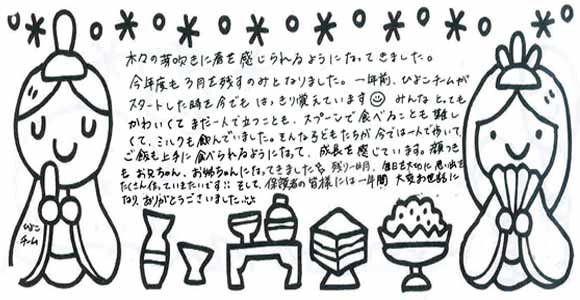 木々の芽吹きに春を感じられるようになってきました。
今年度も3月を残すのみとなりました。一年前、ひよこチームが
スタートした時を今でもはっきり覚えています みんなとっても
かわいくてまだ一人で立つことも、スプーンで食べることも難し
くて、ミルクも飲んでいました。そんな子どもたちが今では一人で歩いて、
ご飯も上手に食べられるようになって、成長を感じています。顔つき
もお兄ちゃん、お姉ちゃんになってきました 残り一ヶ月、毎日を大切に思い出を
たくさん作っていきたいです!! そして、保護者の皆様には一年間 大変お世話に
なり、ありがとうございました
ひよこ
チーム